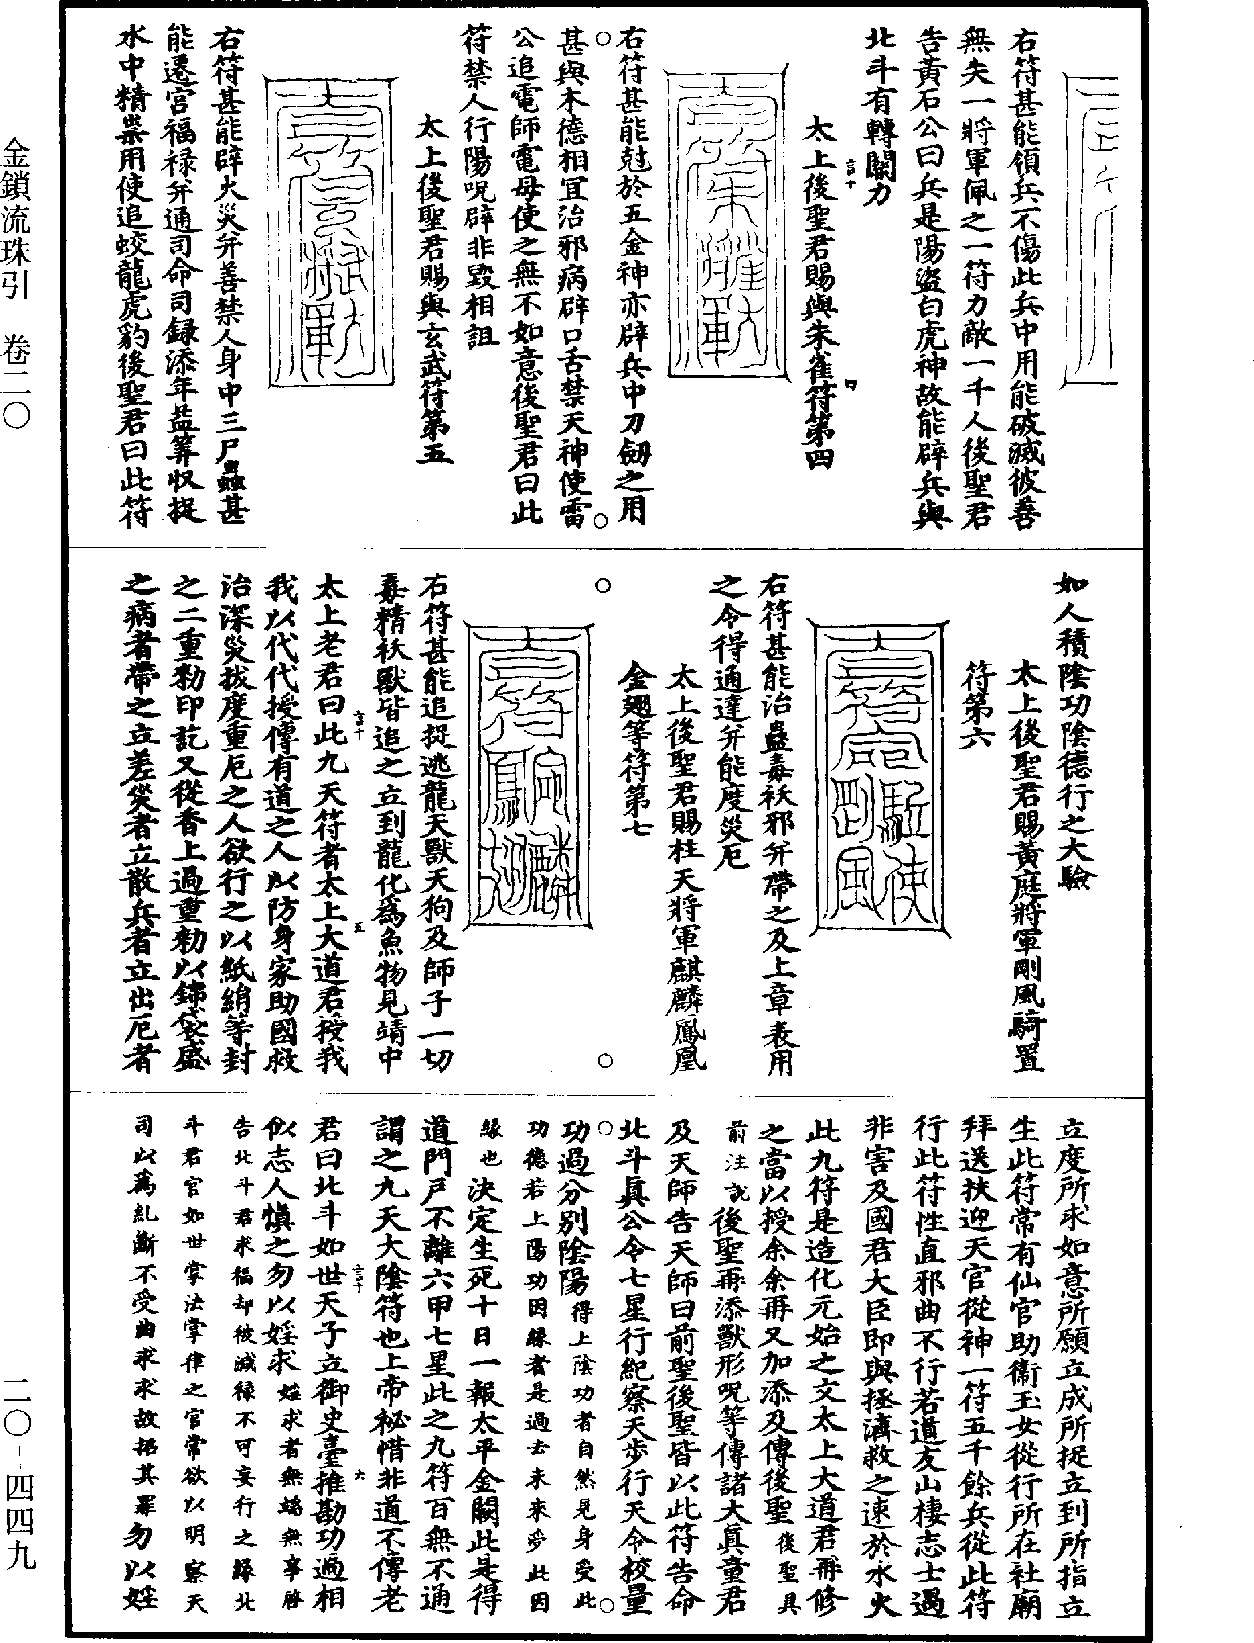 右符甚能領兵不傷此兵中用能破滅彼善
無失一將軍佩之一符力敵一千人後聖君
告黃石公曰兵是陽盜白虎神故能辟兵與
北斗有轉關力
太上後聖君賜與朱雀符第四
右符甚能尅於五金神亦辟兵中刀劒之用
甚與木德相宜治邪病辟口舌禁天神使雷
公追電師電母使之無不如意後聖君曰此
符禁人行陽呪辟非毀相詛
太上後聖君賜與玄武符第五
右符甚能辟火災并善禁人身中三尸蟲甚
能遷官福祿并通司命司錄添年益筭收捉
水中精祟用使追蛟龍虎豹後聖君曰此符
如人積陰功陰德行之大驗
太上後聖君賜黃庭將軍剛風騎置
符第六
右符甚能治蠱毒袄邪并帶之及上章表用
之令得通達并能度災厄
太上後聖君賜柱天將軍麒麟鳳凰
金翅等符第七
右符甚能追捉逃龍天獸天狗及師子一切
毒精袄獸皆追之立到龍化為魚物見靖中
太上老君曰此九天符者太上大道君授我
我以代代授傳有道之人以防身家助國救
治深災拔度重厄之人欲行之以紙絹等封
之二重勑印訖又從香上過重勑以錦袋盛
之病者帶之立差災者立散兵者立出厄者
立度所求如意所願立成所捉立到所指立
生此符常有仙官助衞玉女從行所在社廟
拜送扶迎天官從神一符五千餘兵從此符
行此符性直邪曲不行若道友山棲志士遇
非害及國君大臣即與拯濟救之速於水火
此九符是造化元始之文太上大道君再修
之當以授余余再又加添及傳後聖後聖具
前注說後聖再添獸形呪等傳諸大真童君
及天師告天師曰前聖後聖皆以此符告命
北斗真公令七星行紀察天步行天令校量
功過分別陰陽得上陰功者自然見身受此
功德若上陽功因緣者是過去未來步此因
緣也決定生死十日一報太平金闕此是得
道門戶不離六甲七星此之九符百無不通
謂之九天大陰符也上帝秘惜非道不傳老
君曰北斗如世天子立御史臺推勘功過相
似志人慎之勿以婬求婬求者無端無事啓
告北斗君求福却被減祿不可妄行之緣北
斗君官如世掌法掌律之官常欲以明察天
司以為亂斷不受曲求求故招其罪勿以婬
金鎖流珠引　卷二〇
二〇-四四九